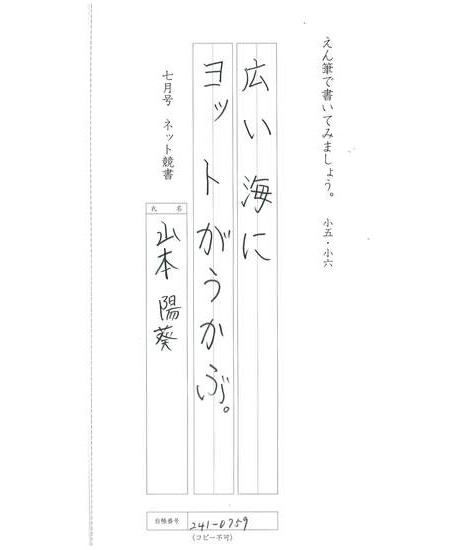 えん筆で書いてみましょう。 小五・小六
広い海に
ヨットがうかぶ。
七月号 ネット競書
氏名
山本陽葵
台帳番号 241-0759
(コピー不可)